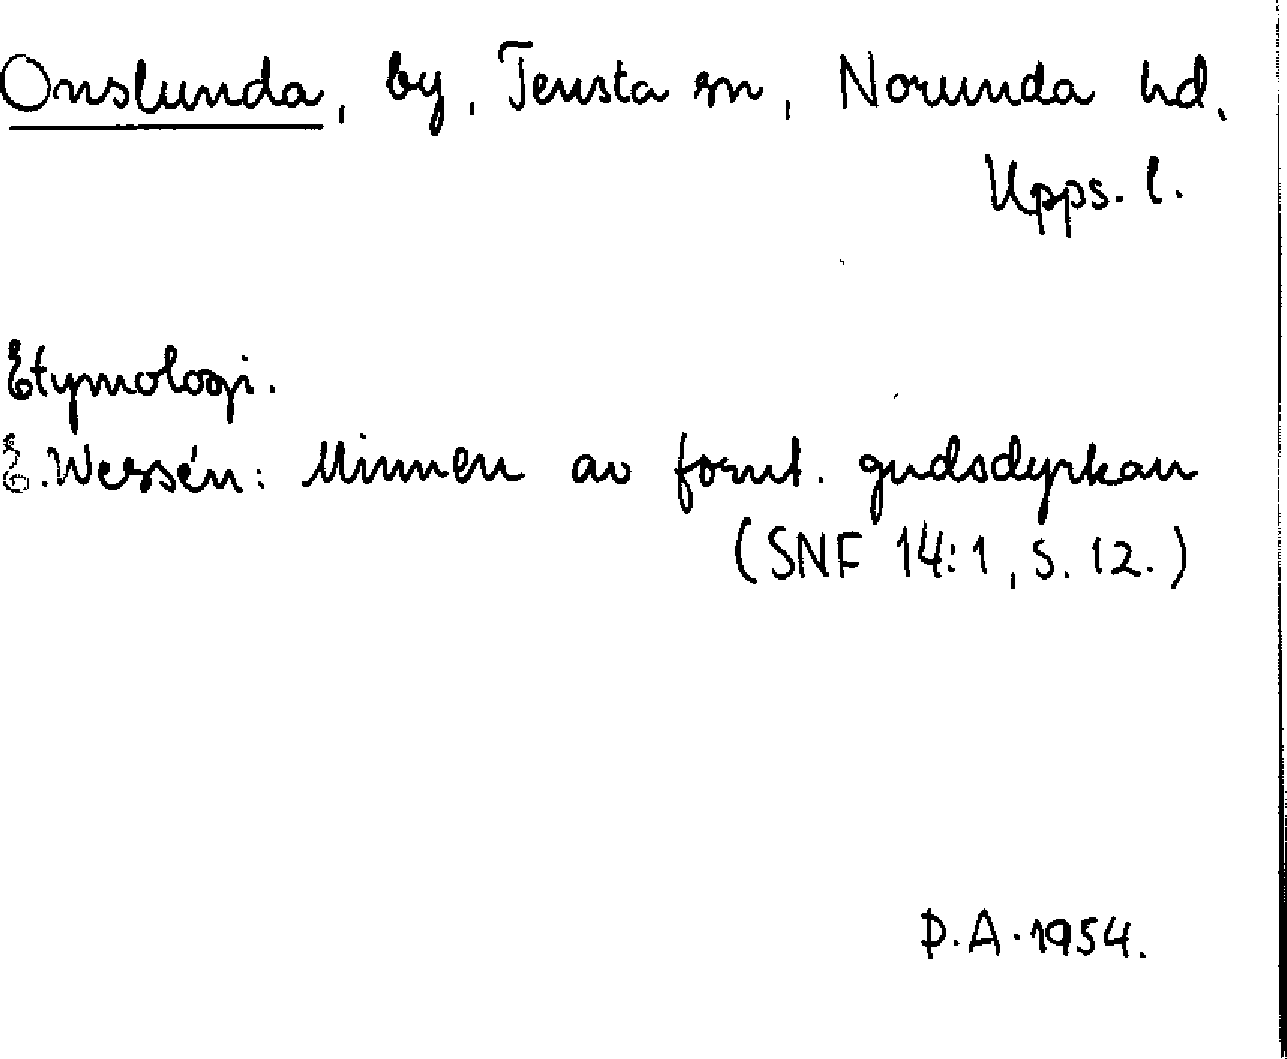 Onslunda, by, Tensta sn, Norunda hd.
Upps. l.
Etymologi.
E. Wessén: Minnen av fornt. gudsdyrkan
(SNF 14:1, s. 12.)
D.A. 1954.